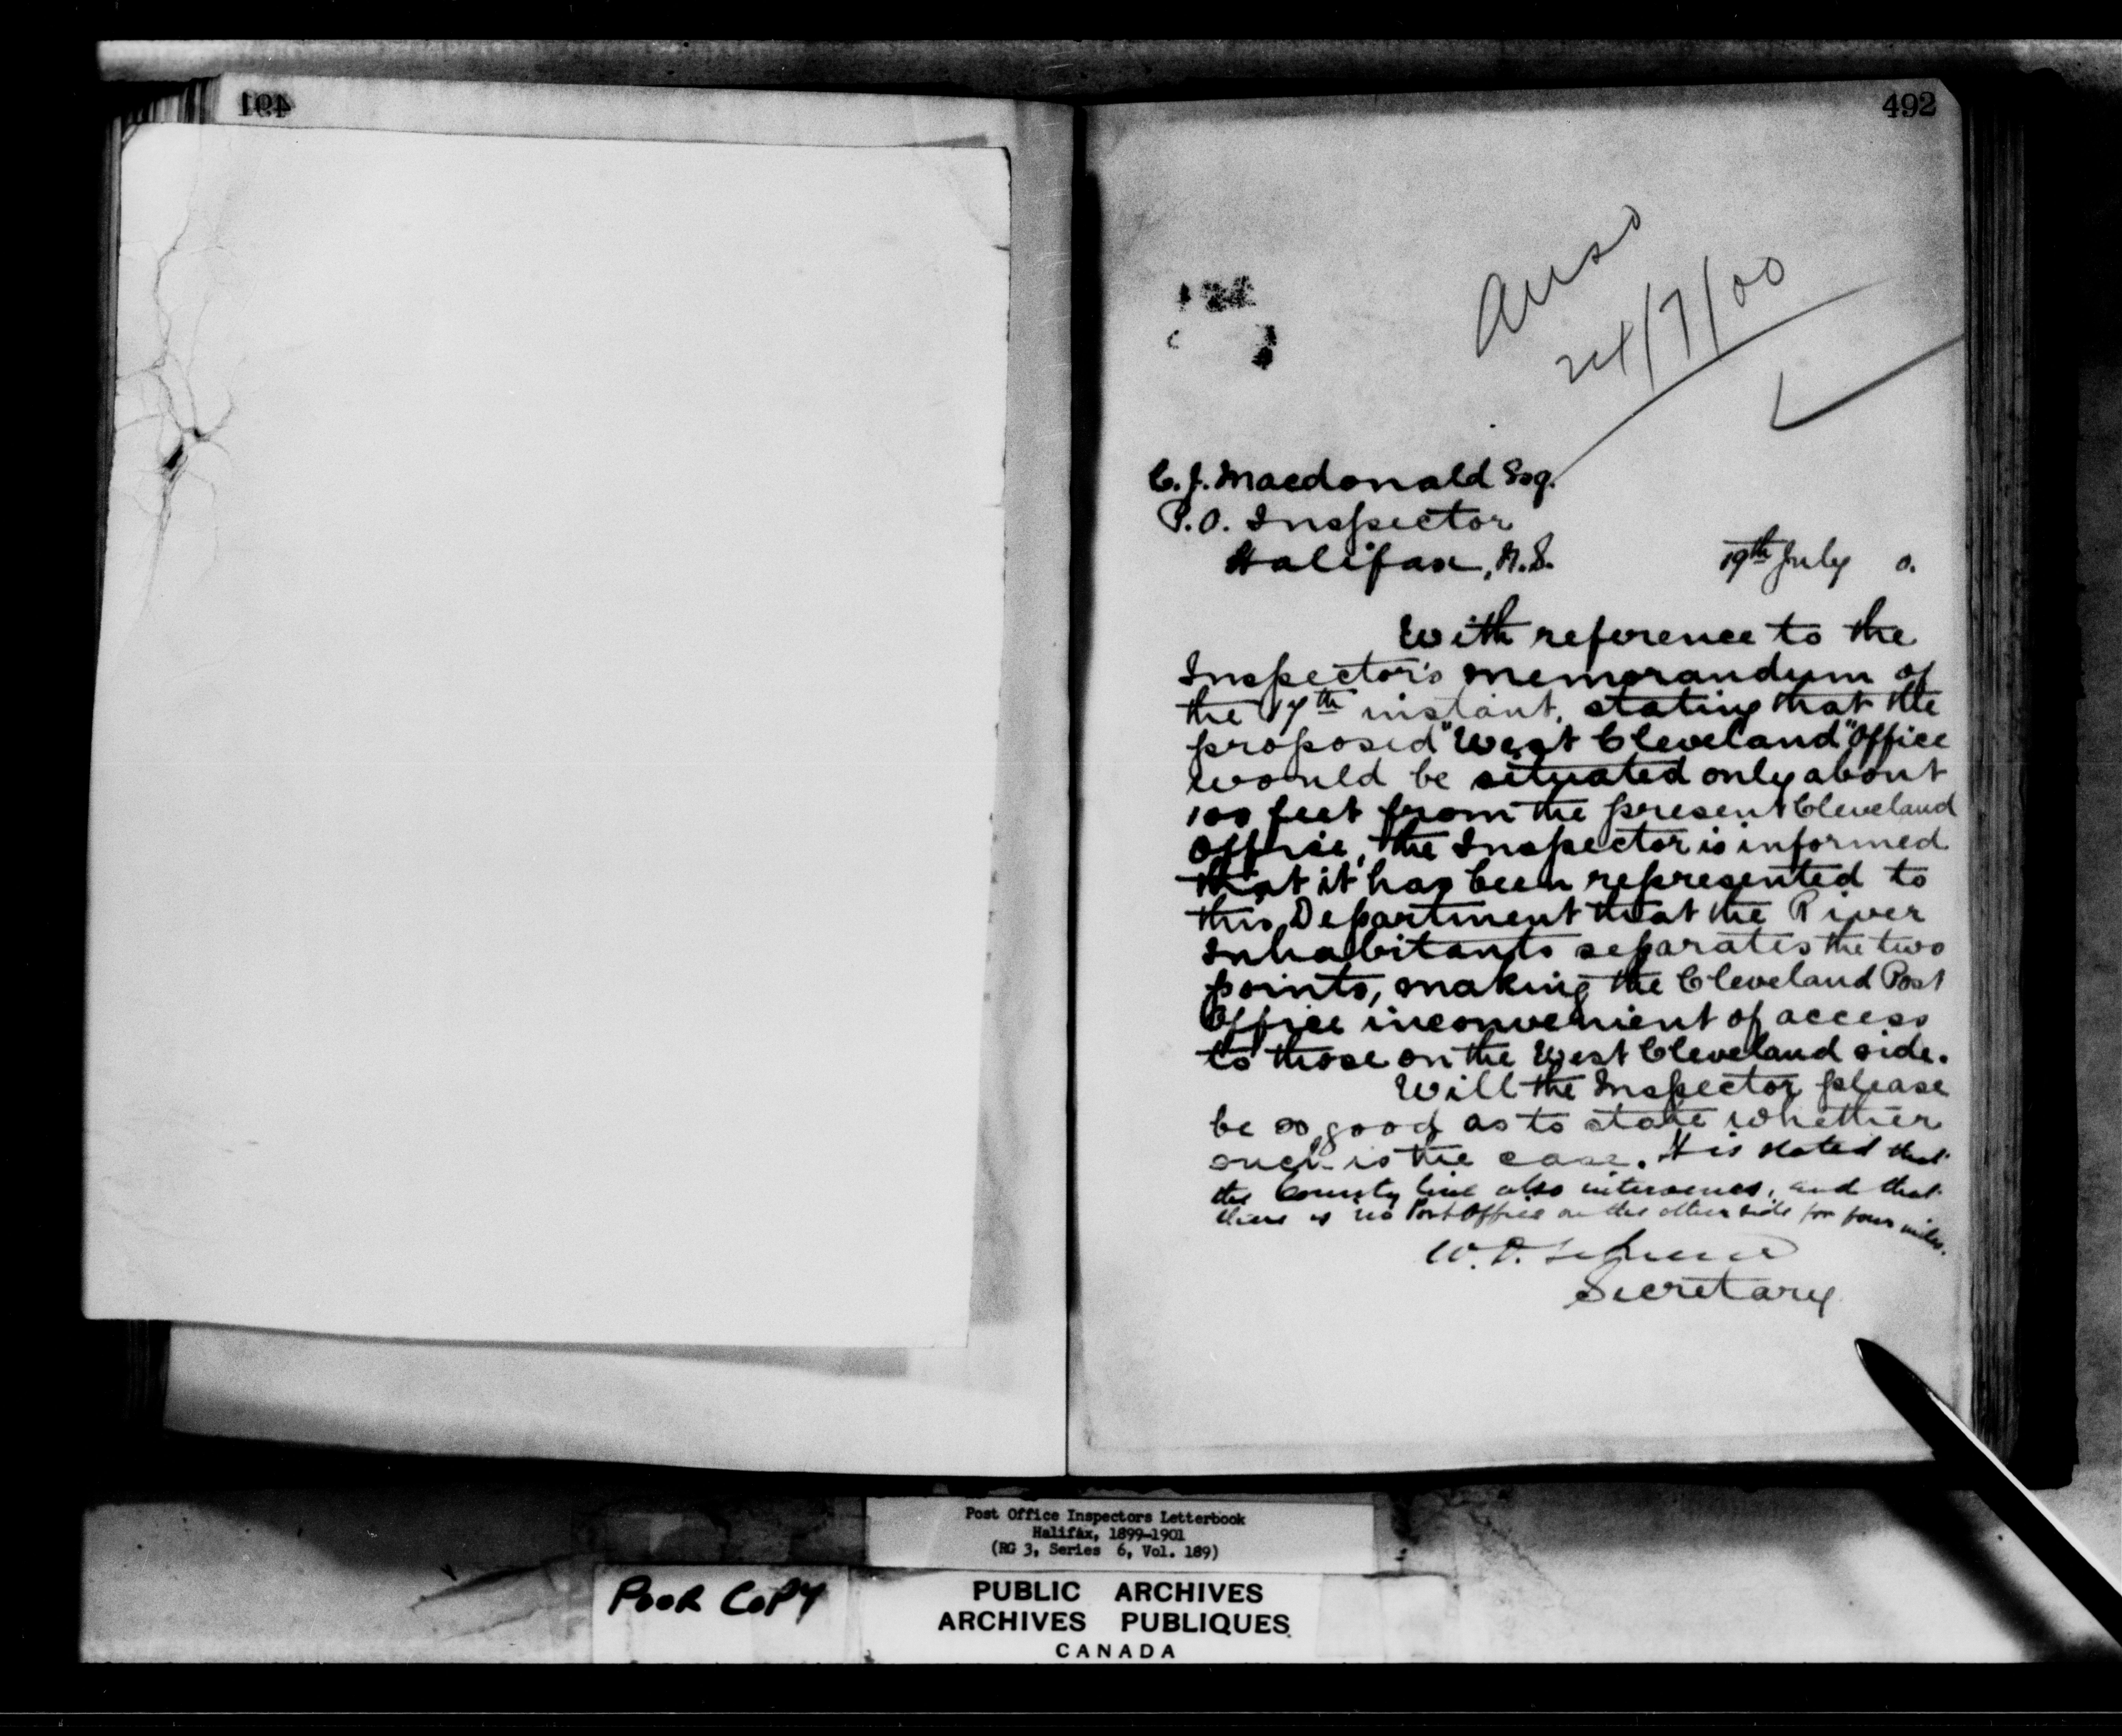 491
492
Ansd
24/7/00
C. J. Macdonald Esq.
P.O. Inspector
Halifax, N.S. 19th July 0.
With reference to the
Inspector's memorandum of
the 17th instant, stating that the
proposed "West Cleveland" Office
would be situated only about
100 feet from the present Cleveland
Office, the Inspector is informed
that it has been represented to
this Department that the River
Inhabitants separates the two
points, making the Cleveland Post
Office inconvenient of access
to those on the West Cleveland side.
Will the Inspector please
be so good as to state whether
such is the case. It is stated that
the County line also intervenes, and that
there is no Post Office on the other side for four miles.
W. D.
Secretary
Post Office Inspectors Letterbook
Halifax, 1899-1901
(RG 3, Series 6, Vol. 189)
POOR COPY
PUBLIC ARCHIVES
ARCHIVES PUBLIQUES
CANADA